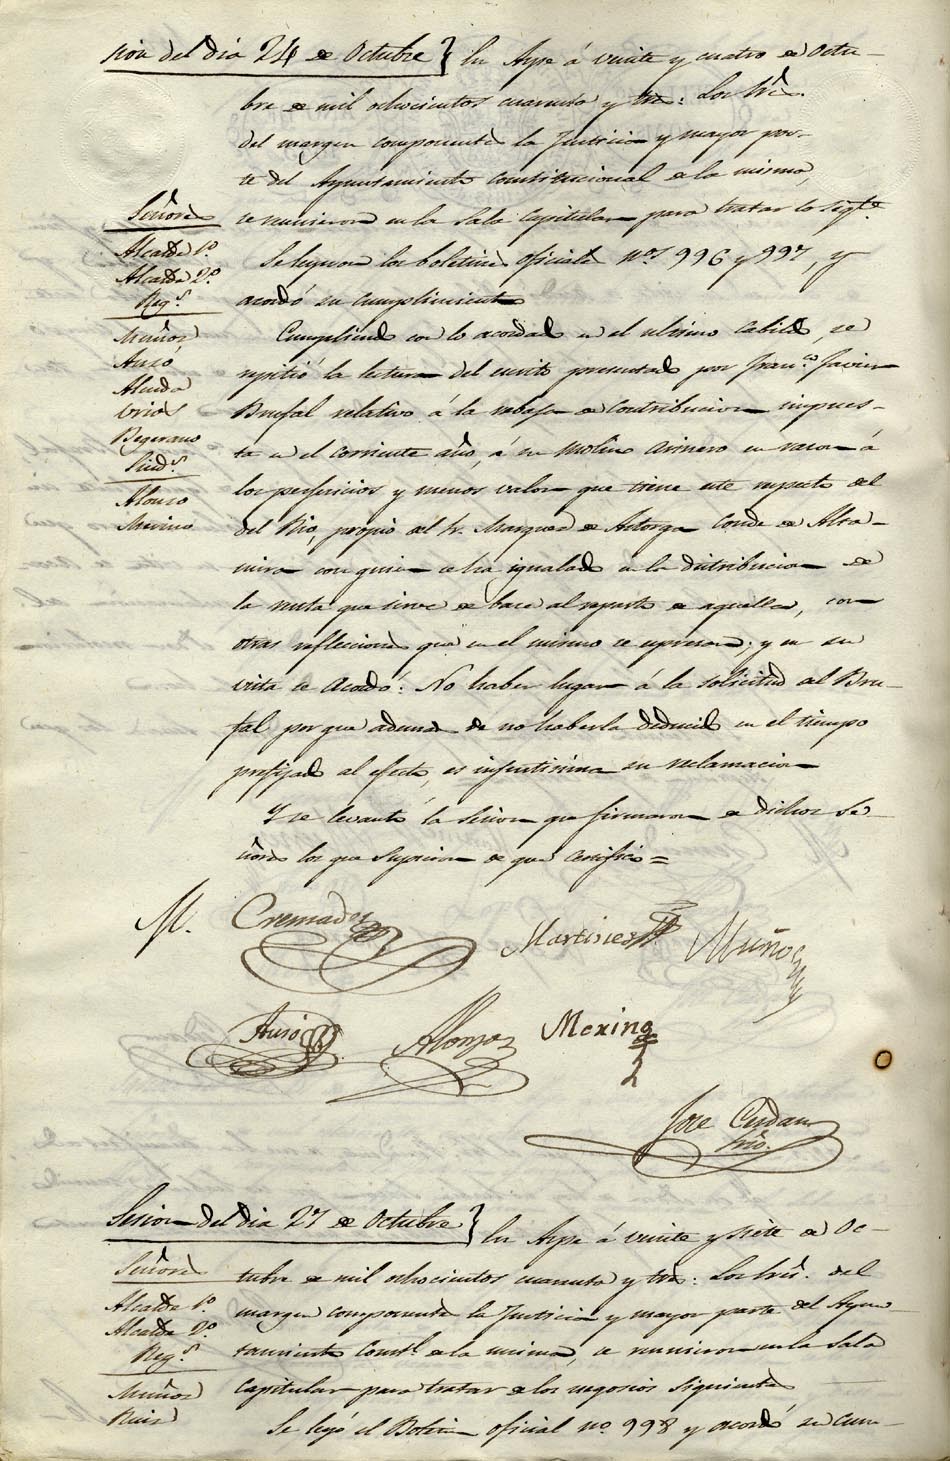 sion del dia 24 de Octubre} En Aspe á veinte y cuatro de Octu-
bre de mil ochocientos cuarenta y tres: Los Srs.
del margen componentes la Justicia y mayor par-
te del Ayuntamiento constitucional de la misma,
se reunieron en la Sala Capitular para tratar lo sigte.
Señores
Alcalde 1º.
Alcalde 2º.
Regs.
Muñoz
Auzó
Almda
Brios
Begerano
Sinds.
Alonzo
Merino
Se leyeron los boletines oficiales nos. 996 y 997, y
acordó su cumplimiento
Cumpliendo con lo acordado en el ultimo Cabildo, se
repitió la lectura del escrito presentado por Franco. Javier
Brufal relativo á la rebaja de contribucion impues-
ta en el corriente año, á su molino arinero en razon á
los perjuicios y menos valor que tiene este respecto del
del Rio, propio del Sr. Marques de Astorga Conde de Alta-
mira con quien se ha igualado en la distribucion de
la renta que sirve de base al reparto de aquella, con
otras reflecciones que en el mismo se espresan; y en su
vista se Acordó: No haber lugar á la solicitud del Bru-
fal por que ademas de no haberla deducido en el tiempo
prefijado al efecto, es infertisima su reclamacion
Y se levantó la sesion que firmaron de dichos Se-
ñores los que supieron de que certifico=
M. Cremades Martinez Muñoz
Auzó Alonzo Merino
Jose Cerdan
Srio.
Sesion del dia 27 de Octubre} En Aspe á veinte y siete de Oc-
tubre de mil ochocientos cuarenta y tres: Los Srs. del
margen componentes la Justicia y mayor parte del Ayun-
tamiento Constl. de la misma, se reunieron en la Sala
Capitular para tratar de los negocios siguientes
Señores
Alcalde 1º.
Alcalde 2º.
Regs.
Muñoz
Ruiz
Se leyó el Boletin oficial nº. 998 y acordó su cum-